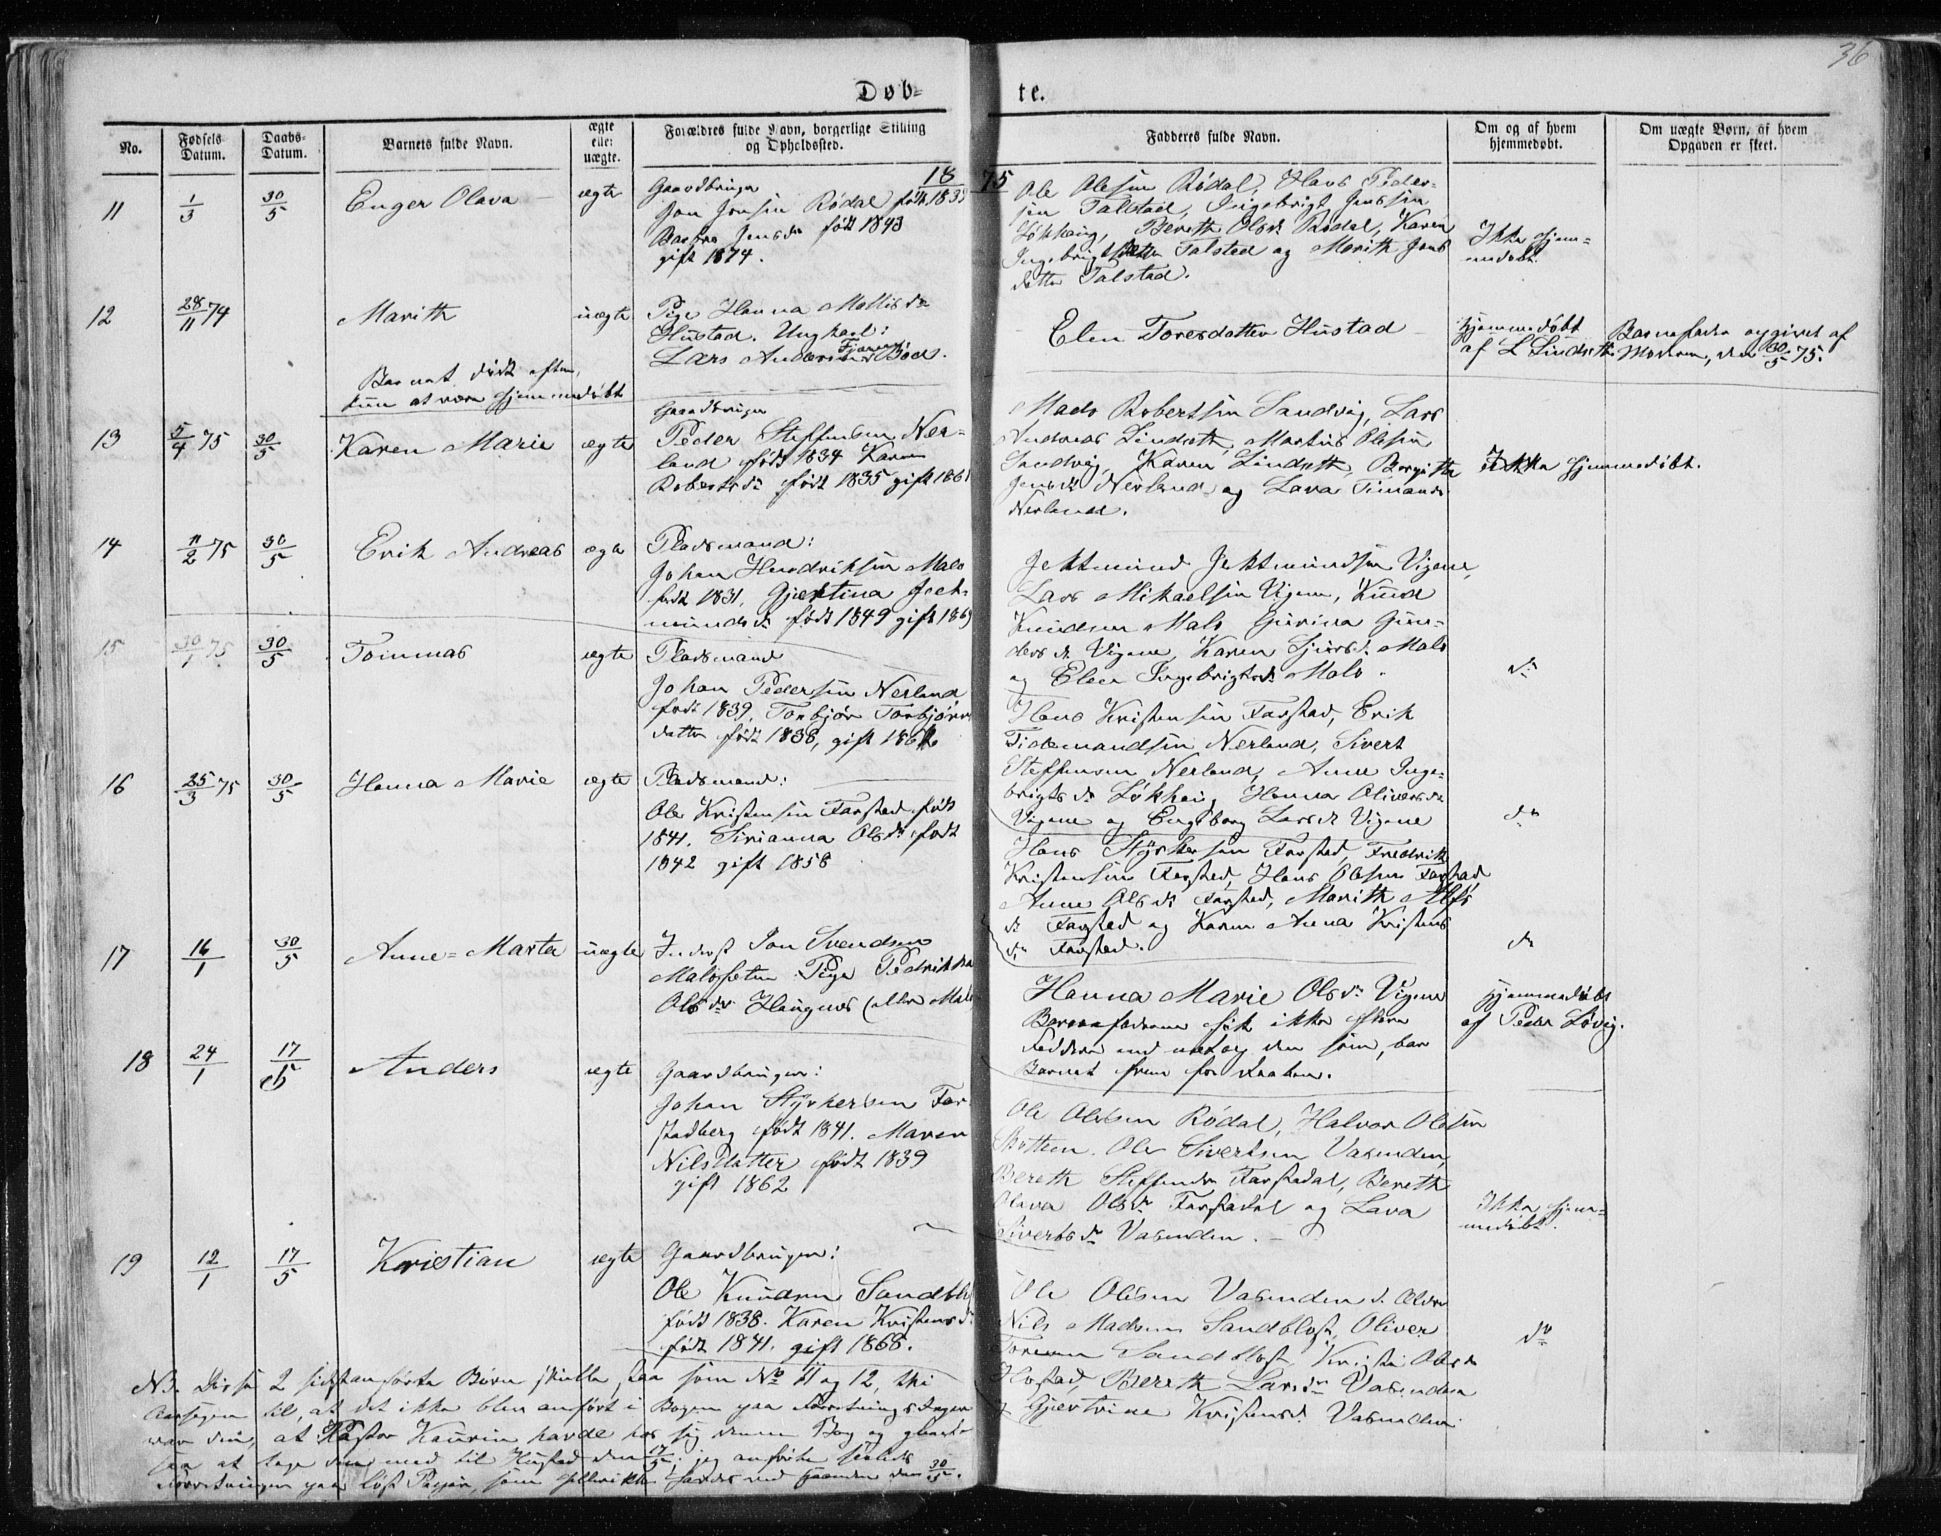 36
Døb=
te.
No.
Fødsels Datum.
Daabs-Datum.
Barnets fulde Navn.
ægte eller uægte.
Forældres fulde Navn, borgerlige Stilling og Opholdssted.
Fadderes fulde Navn.
Om og af hvem hjemmedøbt.
Om uægte Børn, af hvem Opgaven er skeet.
18 75
11
1/3
30/5
Enger Olava
ægte
Gaardbruger
Jon Jonsen Rødal født 183
Jensdr født 1843
gift 1874.
Ole Olesen Rødal, Hans Peder-
sen Talstad, Ingebrigt Jenssen
Løkhaug, Bereth Olsdr Rødal, Karen
Ingebrigtsdatter Talstad og Marith Jons
datter Talstad.
Ikke hjem=
medøbt.
12
28/11 74
Marith
uægte
Pige Hanna Mattisdr
Hustad. Ungkarl:
Lars Andersen Bøes.
Barnet døde efter,
kun at være hjemmedøbt
Elen Toresdatter Hustad
Hjemmedøbt
af L Lindseth
Barnefader opgivet af
Moderen, den 30/5 75.
13
5/4 75
30/5
Karen Marie
ægte
Gaardbruger
Peder Steffensen Ner-
land født 1834 Karen
Robertsdr født 1835 gift 186
Mads Robertsen Sandvig, Lars
Andreas Lindseth, Martus Olesen
Sandvig, Karen Lindseth, Bergitte
Jensdr Nerland og Lava Timands
Nerland.
Ikke hjemmedøbt.
14
11/2 75
30/5
Erik Andreas
ægte
Pladsmand:
Johan Hendriksen Malo
født 1831. Gjertina Jeck-
mundsdr født 1849 gift 1869
Jektmund Jektmundsen Vigene,
Lars Mikaelsen Vigene, Knud
Knudsen Malo Gurina Gun-
dersdr Vigene, Karen Sjursdr Malo
og Elen Ingebrigtsdr Malo.
do
15
30/1 75
30/5
Tommas
ægte
Pladsmand
Johan Pedersen Nerland
født 1839. Torbjør Torbjørns
datter født 1838, gift 186
Hans Kristensen Farstad, Erik
Tidemandsen Nerland, Sivert
Steffensen Nerland, Anne Inge-
brigtsdr Løkhaug Hanna Oliversdr
Vigene og Engeborg Larsdr Vigene
do
16
25/3 75
30/5
Hanna Marie
ægte
Pladsmand:
Ole Kristensen Farstad født
1841. Sirianna Olsdr født
1842 gift 1858
Hans Styrkersen Farstad, Fredrik
Kristensen Farstad, Hans Olsen Farstad
Anne Olsdr Farstad, Marith
dr Farstad og Karen Anna Kristens
dr Farstad.
do
17
16/1
30/5
Anne=Marta
uægte
Inderst Jon Svendsen
Malosetren Pige Fedrikka
Olsdr Haugnes (eller Malo
Hanna Marie Olsdr Vigene
Barnefaderen fik ikke flere
Faddere end netop den som, bar
Barnet frem for Daaben.
Hjemmedøbt
af Peder Løvig.
18
24/1
17/5
Anders
ægte
Gaardbruger:
Johan Styrkersen Far
stadberg født 1841. Maren
Nilsdatter født 1839
gift 1862
Ole Olesen Rødal, Halvor Olesen
Botten. Ole Sivertsen Vasenden,
Bereth Steffensdr Farstadal, Bereth
Olava Olsdr Farstadal og Lava
Sivertsdr Vasenden.
Ikke hjem=
medøbt.
19
12/1
17/5
Kristian
ægte
Gaardbruger:
Ole Knudsen Sandbl
født 1838. Karen Kristensdr
født 1841. gift 1868.
Ole Olesen Vasenden d. Ældre
Nils Madsen Sandblost, Oliver
Sandblost Kristi Olsdr
Hostad, Bereth Larsdr Vasenden
Gjertrine Kristensdr Vasenden
do
NB. Disse 2 sidstanførte Børn skulle staa som No 11 og 12, thi
Aarsagen til, at det ikke blev anført i Bogen paa Forretningsdagen
var den, at Pastor Kaurin havde hos sig denne Bog og glemte
at tage den med til Hustad den 17/5; jeg anførte
Forretningen paa løst Papir, som den 30/5.